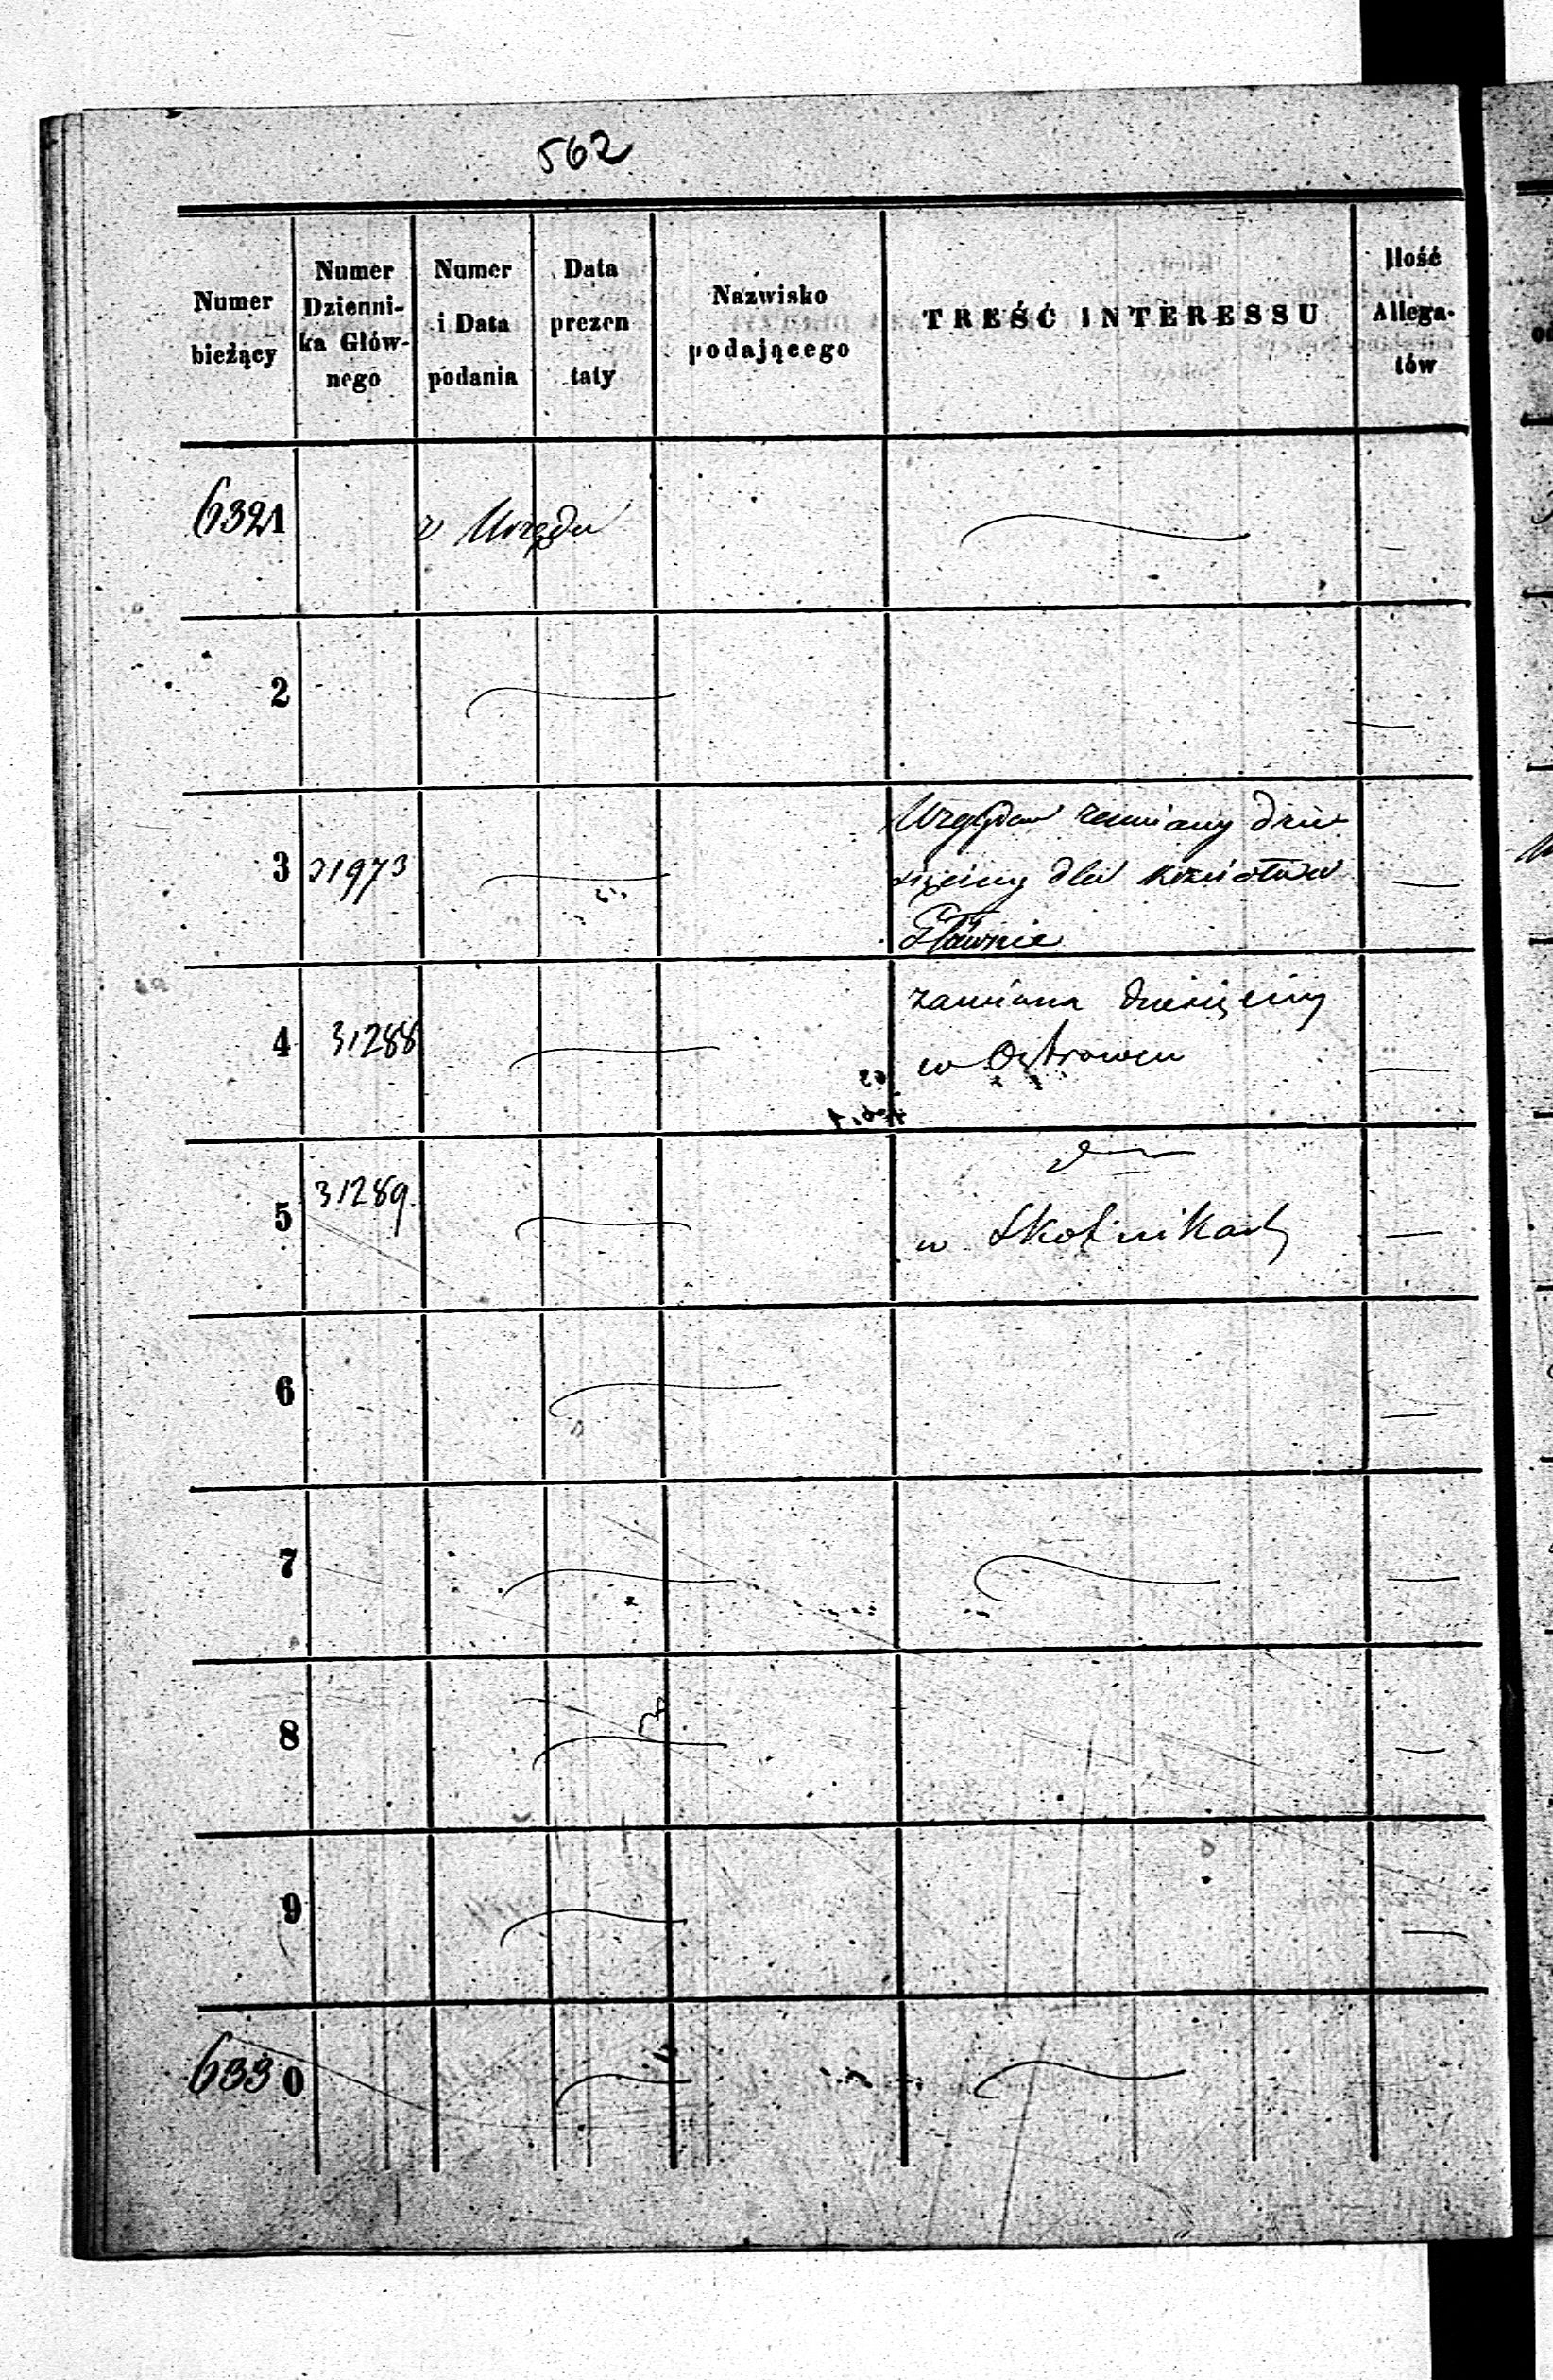 562
Numer bieżący
Numer Dzienni-ka Głów-nego
Numer i Data podania
Data prezen taty
Nazwisko podającego
TREŚĆ INTERESSU
Ilość Allega-tów
6321 z Urzędu
2
3 31973 Względem zamiany dzie
sięciny dla kościoła w
Gławnie
4 31288 zamiana dziesięciny
w Ostrowcu
5 31289
w Skotnikach
6
7
8
9
6330